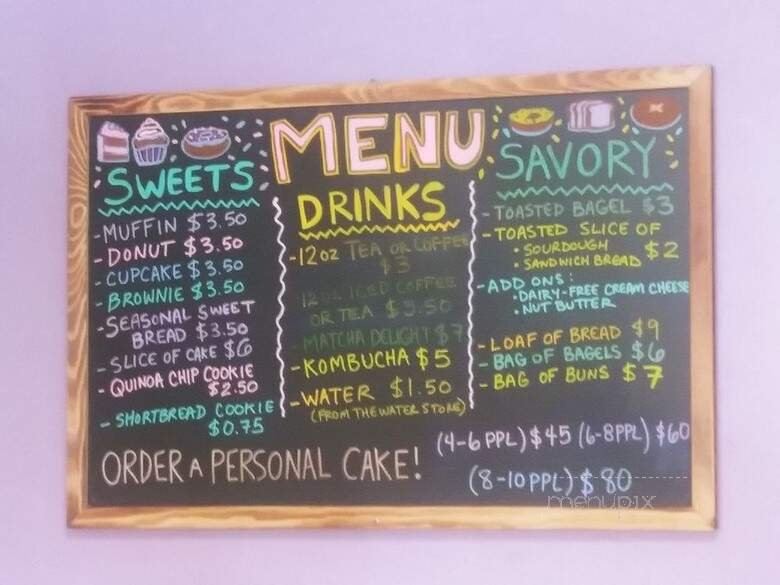 MENU
SWEETS
- MUFFIN $3.50
- DONUT $3.50
- CUPCAKE $3.50
- BROWNIE $3.50
- SEASONAL SWEET
BREAD $3.50
- SLICE OF CAKE $6
- QUINOA CHIP COOKIE
$2.50
- SHORTBREAD COOKIE
$0.75
DRINKS
- 12 OZ TEA OR COFFEE
$3
12 OZ ICED COFFEE
OR TEA $3.50
MATCHA DELIGHT $7
- KOMBUCHA $5
- WATER $1.50
(FROM THE WATER STORE)
SAVORY
- TOASTED BAGEL $3
- TOASTED SLICE OF
• SOURDOUGH
• SANDWICH BREAD $2
- ADD ONS:
• DAIRY-FREE CREAM CHEESE
• NUT BUTTER
- LOAF OF BREAD $9
- BAG OF BAGELS $6
- BAG OF BUNS $7
ORDER A PERSONAL CAKE!
(4-6 PPL) $45 (6-8PPL) $60
(8-10 PPL) $80
menupix